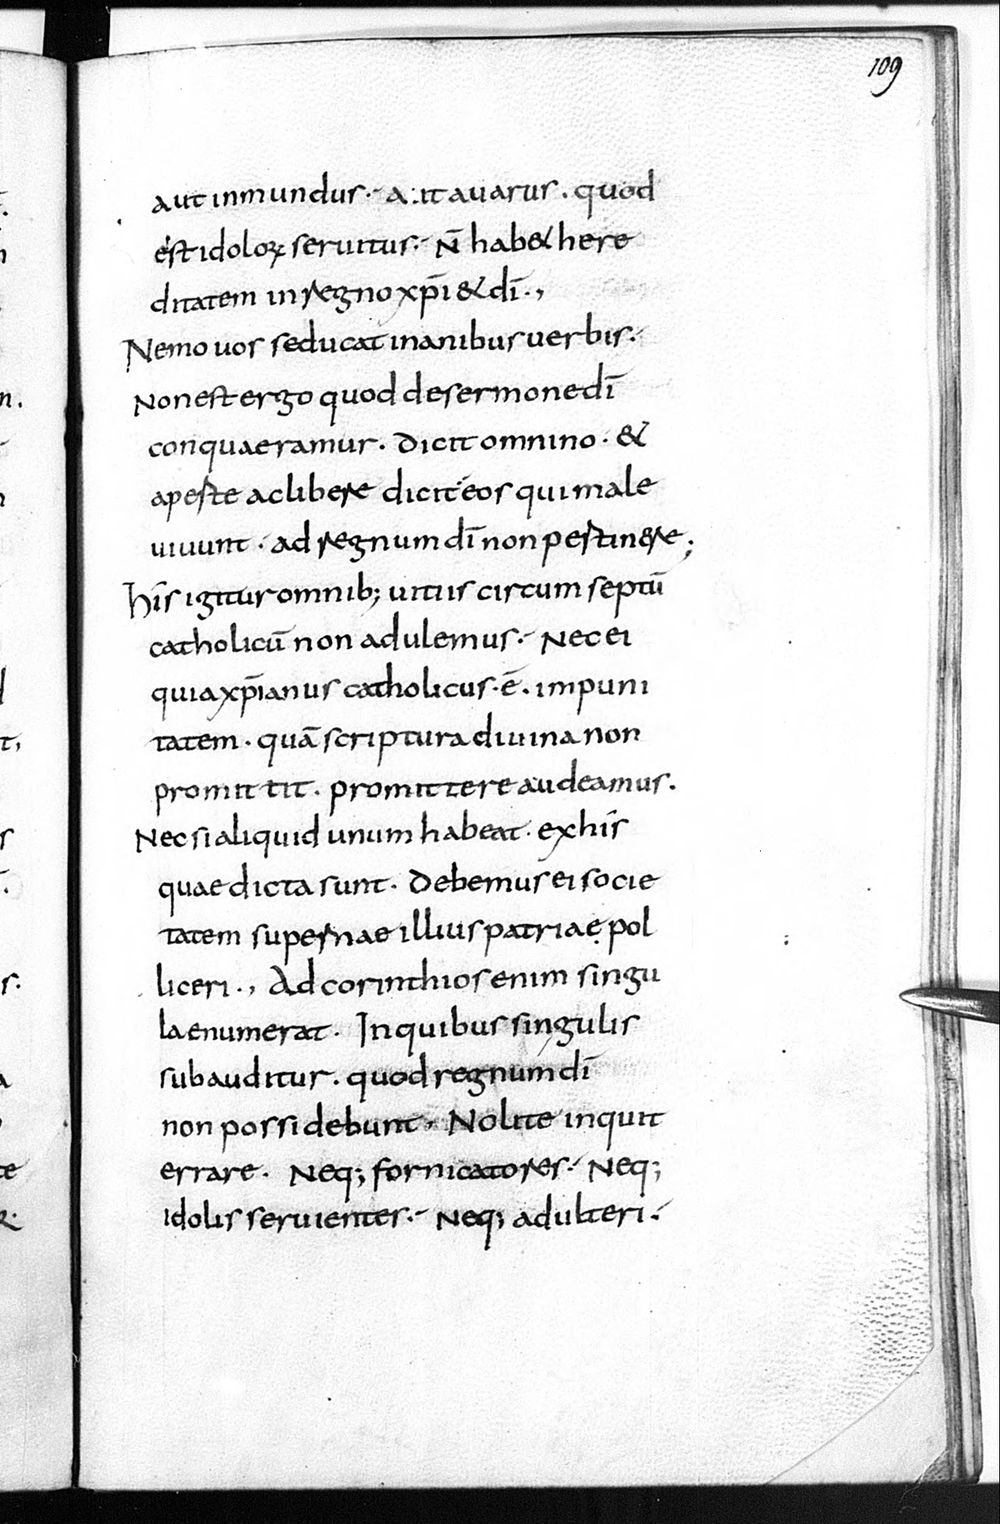 109
aut inmundus · aut auarus · quod
est idoloꝝ seruitus · n̄ hab& here
ditatem in regno xp̄i & dī ·,
Nemo uos seducat inanibus uerbis ·
Non est ergo quod de sermone dī
conquaeramur · Dicit omnino · &
apeste ac libere dicit eos qui male
uiuunt · ad regnum dī non pertin&re ;
hīs igitur omnib; uitiis circum septū
catholicū non adulemus · Nec ei
quia xp̄ianus catholicus · ē · impuni
tatem · quā scriptura diuina non
promittit · promittere audeamus ·
Nec si aliquid unum habeat · ex hīs
quae dicta sunt · Debemus ei socie
tatem supernae illius patriae pol
liceri ·, Ad corinthios enim singu
la enumerat · In quibus singulis
subauditur · quod regnum dī
non possidebunt · Nolite inquit
errare · Neq; fornicatores · Neq;
idolis seruientes · Neq; adulteri ·